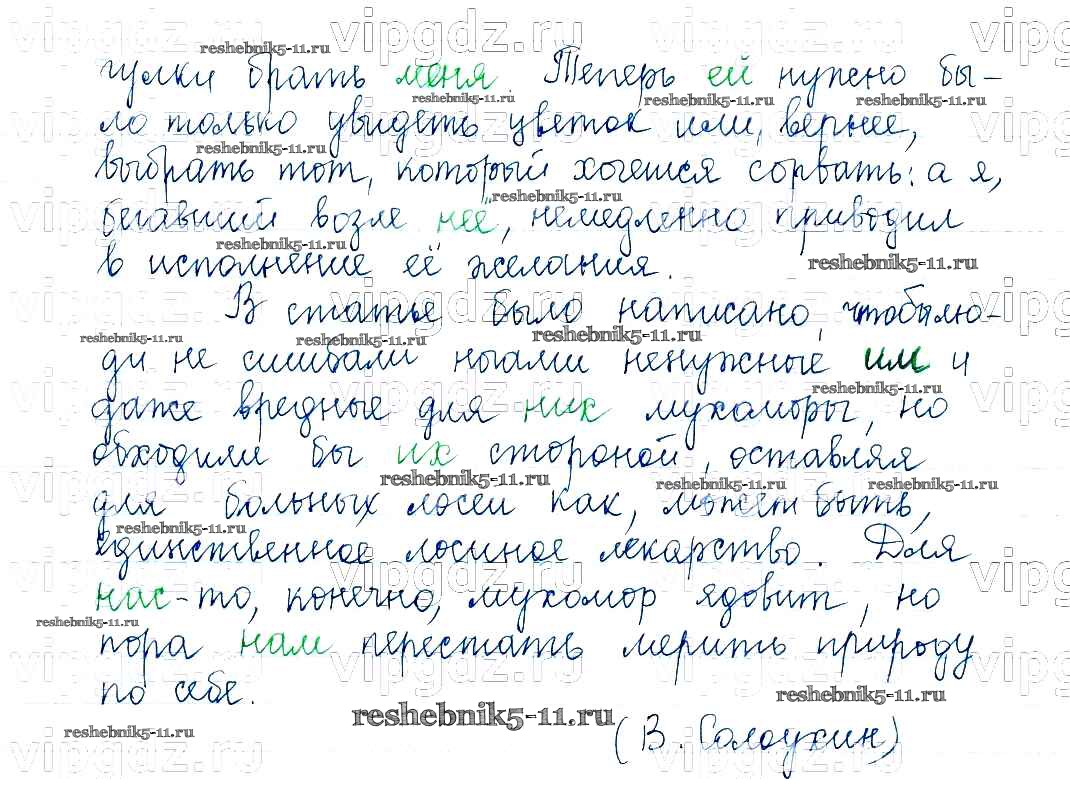 гулки брать меня. Теперь ей нужно бы-
ло только увидеть цветок или, вернее,
выбрать тот, который хочешся сорвать: а я,
бегавший возле неё, немедленно приводил
в исполнение её желания.
В статье было написано, чтобы лю-
ди не сшибали ногами ненужные им и
даже вредные для них мухоморы, но
обходили бы их стороной, оставляя
для больных лосей как, может быть,
единственное лосиное лекарство. Для
нас-то, конечно, мухомор ядовит, но
пора нам перестать мерить природу
по себе.
(В. Солоухин)
vipgdz.ru
reshebnik5-11.ru